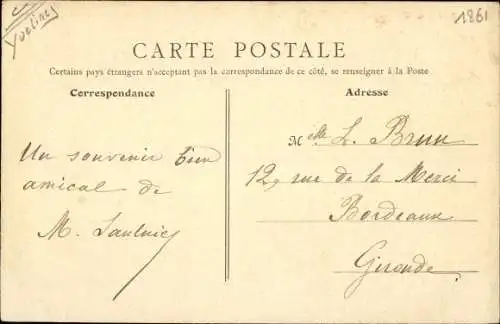 Yvelines
1861
CARTE POSTALE
Certains pays étrangers n'acceptant pas la correspondance de ce côté, se renseigner à la Poste
Correspondance
Un souvenir bien
amical de
M. Saulnier
Adresse
Melle L. Brun
12, rue de la Merci
Bordeaux
Gironde